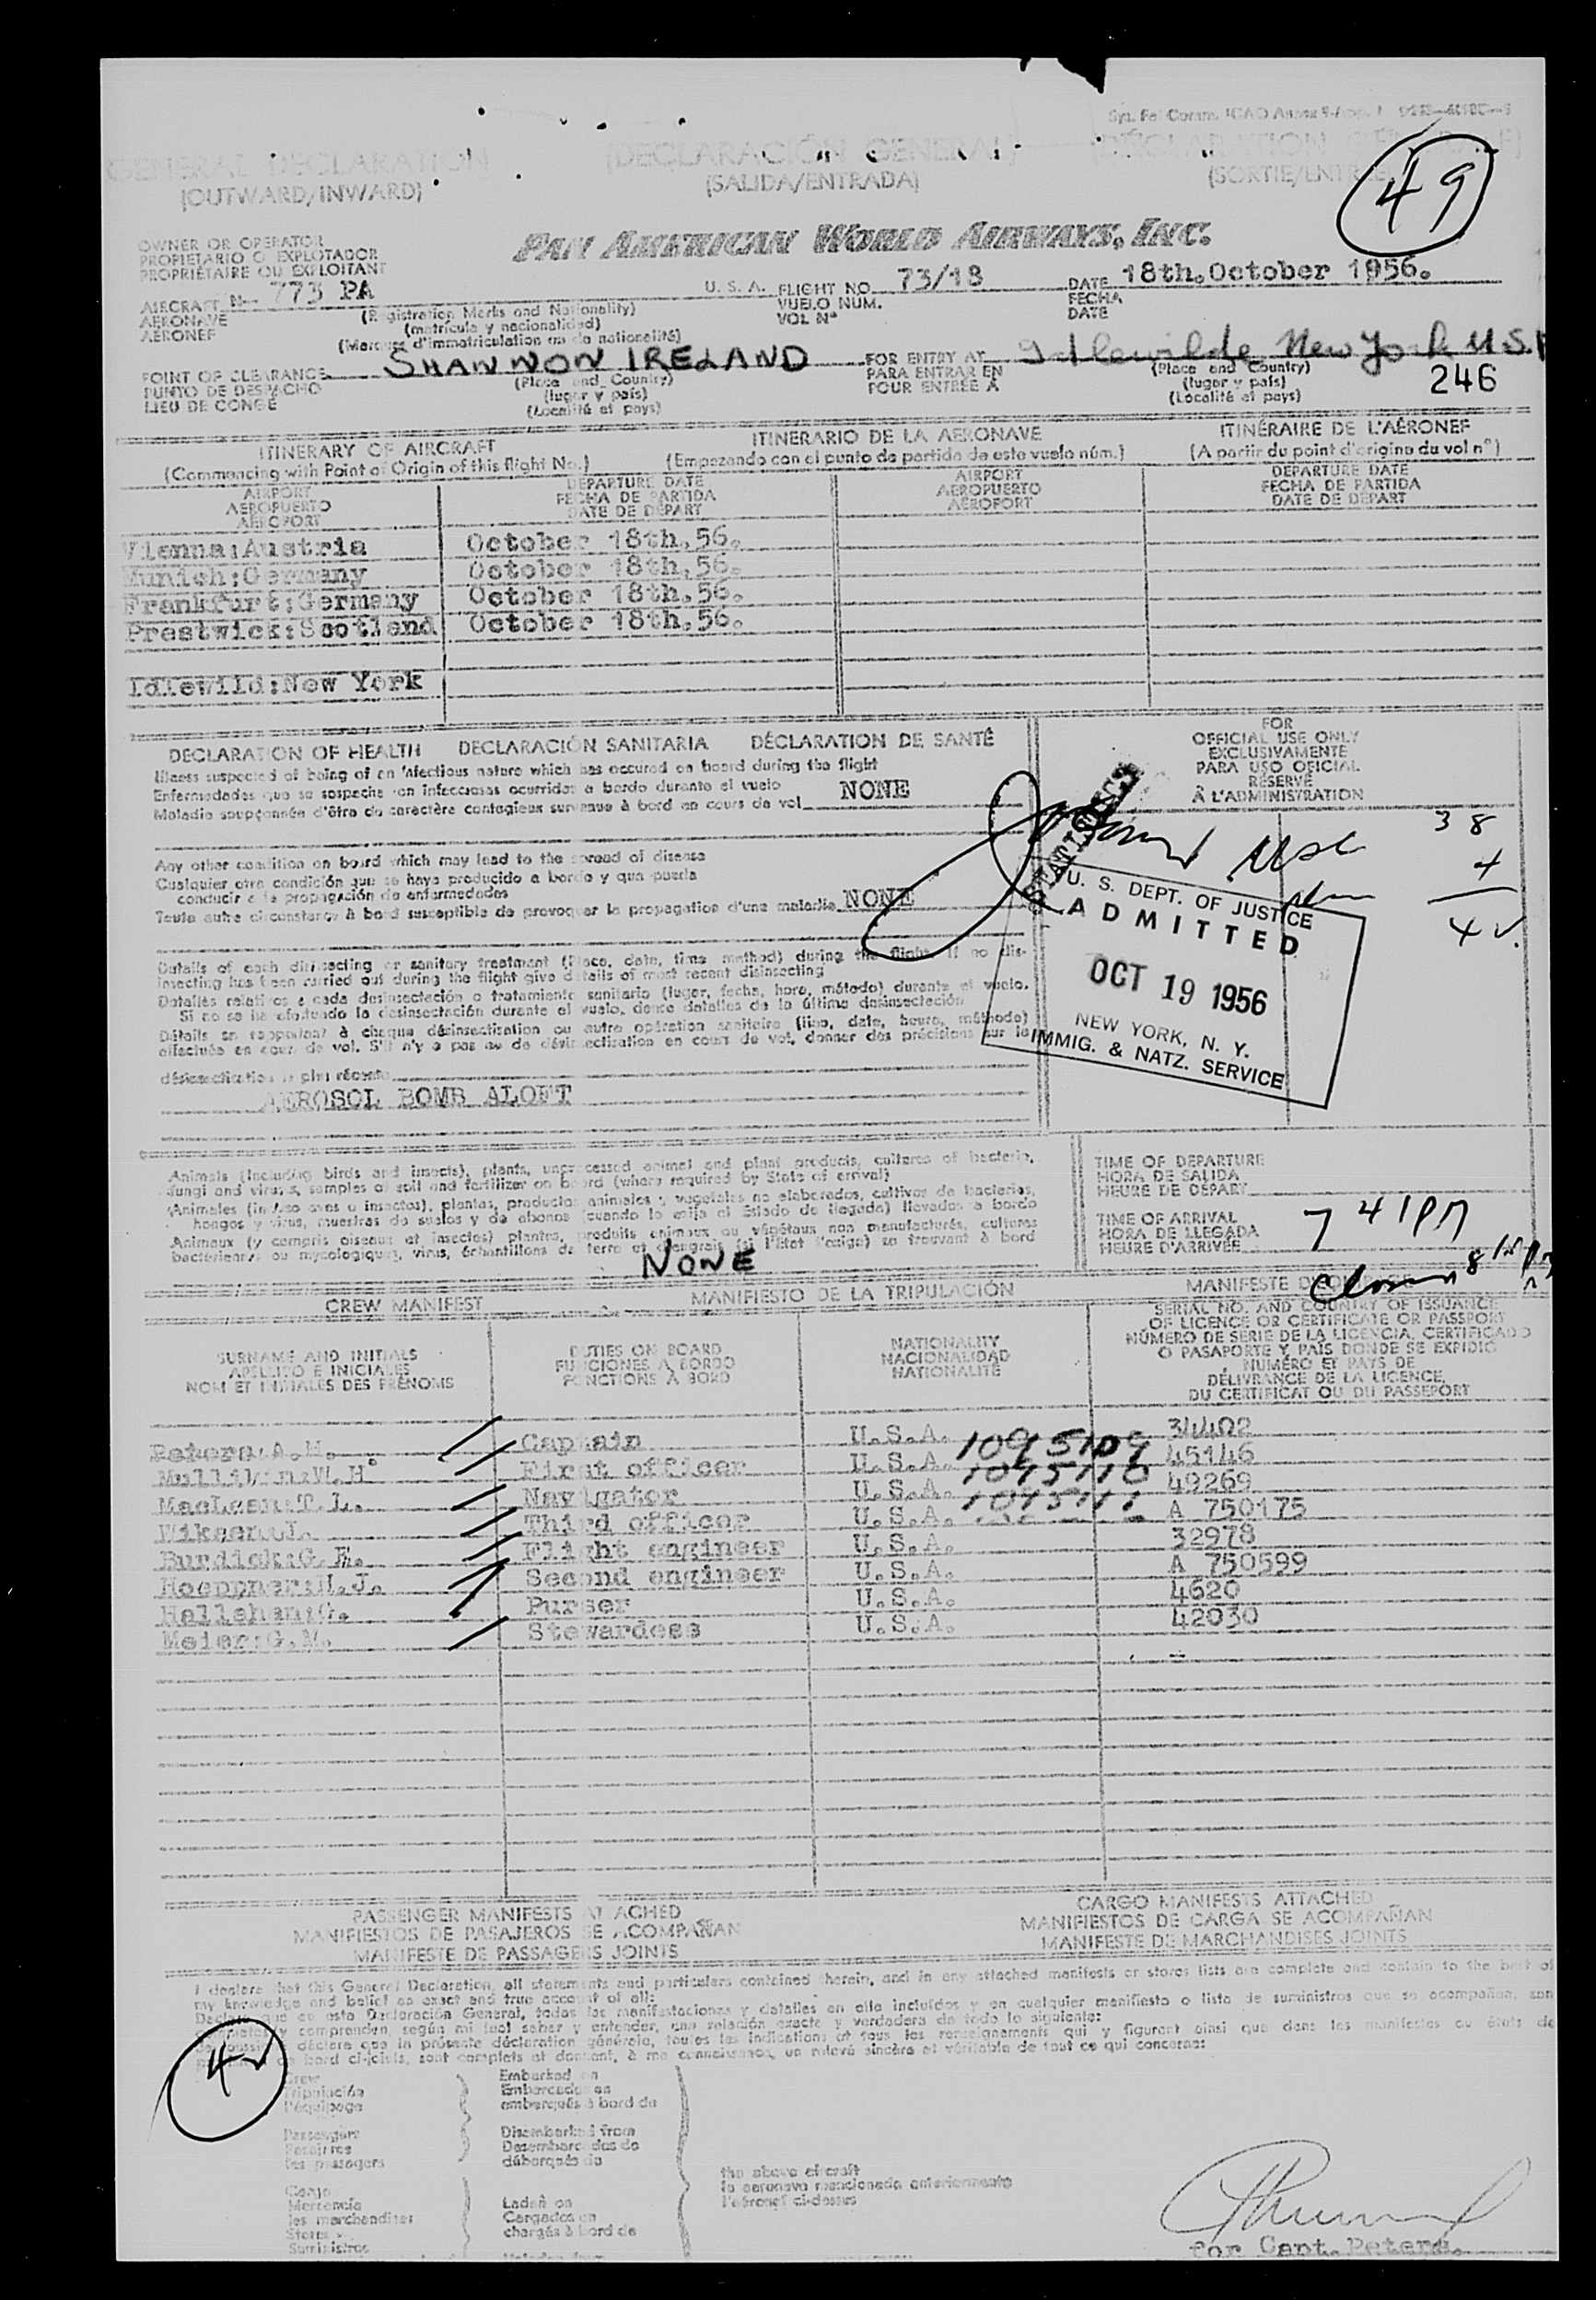 GENERAL DECLARATION (DECLARACIÓN GENERAL) (DÉCLARATION
(OUTWARD/INWARD) (SALIDA/ENTRADA) (SORTIE/ENTRÉE)
49
OWNER OR OPERATOR
PROPIETARIO O EXPLOTADOR
PROPRIÉTAIRE OU EXPLOITANT
PAN AMERICAN WORLD AIRWAYS, INC.
AIRCRAFT N- 773 PA U. S. A. FLIGHT NO. 73/18 DATE 18th.October 1956.
AERONAVE (Registration Marks and Nationality) VUELO NUM. FECHA
AÉRONEF (matrícula y nacionalidad) VOL Nº DATE
(Marques d'immatriculation ou de nationalité)
POINT OF CLEARANCE SHANNON IRELAND FOR ENTRY AT Idlewilde New York U.S.A
PUNTO DE DESPACHO (Place and Country) PARA ENTRAR EN (Place and Country) 246
LIEU DE CONGÉ (lugar y país) POUR ENTRÉE A (lugar y país)
(Localité et pays) (Localité et pays)
ITINERARY OF AIRCRAFT ITINERARIO DE LA AERONAVE ITINÉRAIRE DE L'AÉRONEF
(Commencing with Point of Origin of this flight No.) (Empezando con el punto de partida de este vuelo núm.) (A partir du point d'origine du vol nº)
AIRPORT DEPARTURE DATE AIRPORT DEPARTURE DATE
AEROPUERTO FECHA DE PARTIDA AEROPUERTO FECHA DE PARTIDA
AÉROPORT DATE DE DÉPART AÉROPORT DATE DE DÉPART
Vienna:Austria October 18th.56.
Munich:Germany October 18th.56.
Frankfurt:Germany October 18th.56.
Prestwick:Scotland October 18th.56.
Idlewild:New York
DECLARATION OF HEALTH DECLARACIÓN SANITARIA DÉCLARATION DE SANTÉ
Illness suspected of being of an infectious nature which has occured on board during the flight
Enfermedades que se sospeche son infecciosas ocurridas a bordo durante el vuelo
Maladie soupçonnée d'être de caractère contagieux survenue à bord en cours de vol NONE
FOR
OFFICIAL USE ONLY
EXCLUSIVAMENTE
PARA USO OFICIAL
RÉSERVÉ
À L'ADMINISTRATION
38
4
42
STATISTICS
Any other condition on board which may lead to the spread of disease
Cualquier otra condición que se haya producido a bordo y que pueda
conducir a la propagación de enfermedades
Toute autre circonstance à bord susceptible de provoquer la propagation d'une maladie NONE
U. S. DEPT. OF JUSTICE
ADMITTED
OCT 19 1956
NEW YORK, N. Y.
IMMIG. & NATZ. SERVICE
Details of each disinsecting or sanitary treatment (Place, date, time method) during the flight. If no dis-
insecting has been carried out during the flight give details of most recent disinsecting
Detalles relativos a cada desinsectación o tratamiento sanitario (lugar, fecha, hora, método) durante el vuelo.
Si no se ha efectuado la desinsectación durante el vuelo, dense detalles de la última desinsectación
Détails se rapportant à chaque désinsectisation ou autre opération sanitaire (lieu, date, heure, méthode)
effectuée en cours de vol. S'il n'y a pas eu de désinsectisation en cours de vol, donner des précisions sur la
désinsectisation la plus récente
AEROSOL BOMB ALOFT
Animals (including birds and insects), plants, unprocessed animal and plant products, cultures of bacteria,
fungi and virus, samples of soil and fertilizer on board (where required by State of arrival)
Animales (incluso aves e insectos), plantas, productos animales y vegetales no elaborados, cultivos de bacterias,
hongos y virus, muestras de suelos y de abonos (cuando lo exija el Estado de llegada) llevados a bordo
Animaux (y compris oiseaux et insectes) plantes, produits animaux ou végétaux non manufacturés, cultures
bactériennes ou mycologiques, virus, échantillons de terre et d'engrais (si l'État l'exige) se trouvant à bord
NONE
TIME OF DEPARTURE
HORA DE SALIDA
HEURE DE DÉPART
TIME OF ARRIVAL
HORA DE LLEGADA
HEURE D'ARRIVÉE 7 41 PM
CREW MANIFEST MANIFIESTO DE LA TRIPULACIÓN MANIFESTE
SURNAME AND INITIALS
APELLIDO E INICIALES
NOM ET INITIALES DES PRÉNOMS
DUTIES ON BOARD
FUNCIONES A BORDO
FONCTIONS À BORD
NATIONALITY
NACIONALIDAD
NATIONALITÉ
SERIAL NO. AND COUNTRY OF ISSUANCE
OF LICENCE OR CERTIFICATE OR PASSPORT
NÚMERO DE SERIE DE LA LICENCIA, CERTIFICADO
O PASAPORTE Y PAÍS DONDE SE EXPIDIÓ
NUMÉRO ET PAYS DE
DÉLIVRANCE DE LA LICENCE,
DU CERTIFICAT OU DU PASSEPORT
Peters:A.M. Captain U.S.A. 1095109 34402
W.H. First officer U.S.A. 1095110 45146
MacLean:T.L. Navigator U.S.A. 1095111 49269
Third officer U.S.A. A 750175
Burdick:G.E. Flight engineer U.S.A. 32978
Hoeppner:H.J. Second engineer U.S.A. A 750599
Hallehan:G. Purser U.S.A. 4620
Meier:G.M. Stewardess U.S.A. 42030
PASSENGER MANIFESTS ATTACHED CARGO MANIFESTS ATTACHED
MANIFIESTOS DE PASAJEROS SE ACOMPAÑAN MANIFIESTOS DE CARGA SE ACOMPAÑAN
MANIFESTE DE PASSAGERS JOINTS MANIFESTE DE MARCHANDISES JOINTS
I declare that this General Declaration, all statements and particulars contained therein, and in any attached manifests or stores lists are complete and contain to the best of
my knowledge and belief an exact and true account of all:
Declaro que en esta Declaración General, todas las manifestaciones y detalles en ella incluídos y en cualquier manifiesto o lista de suministros que se acompañan, son
completos y comprenden, según mi leal saber y entender, una relación exacta y verdadera de todo lo siguiente:
déclare que la présente déclaration générale, toutes les indications et tous les renseignements qui y figurent ainsi que dans les manifestes ou états de
bord ci-joints, sont complets et donnent, à ma connaissance, un relevé sincère et véritable de tout ce qui concerne:
42
Crew
Tripulación
l'équipage
Embarked on
Embarcados en
embarqués à bord de
Passengers
Pasajeros
les passagers
Disembarked from
Desembarcados de
débarqués de
the above aircraft
la aeronave mencionada anteriormente
l'aéronef ci-dessus
Cargo
Mercancía
les marchandises
Stores
Suministros
Laden on
Cargados en
chargés à bord de
for Capt. Peters.